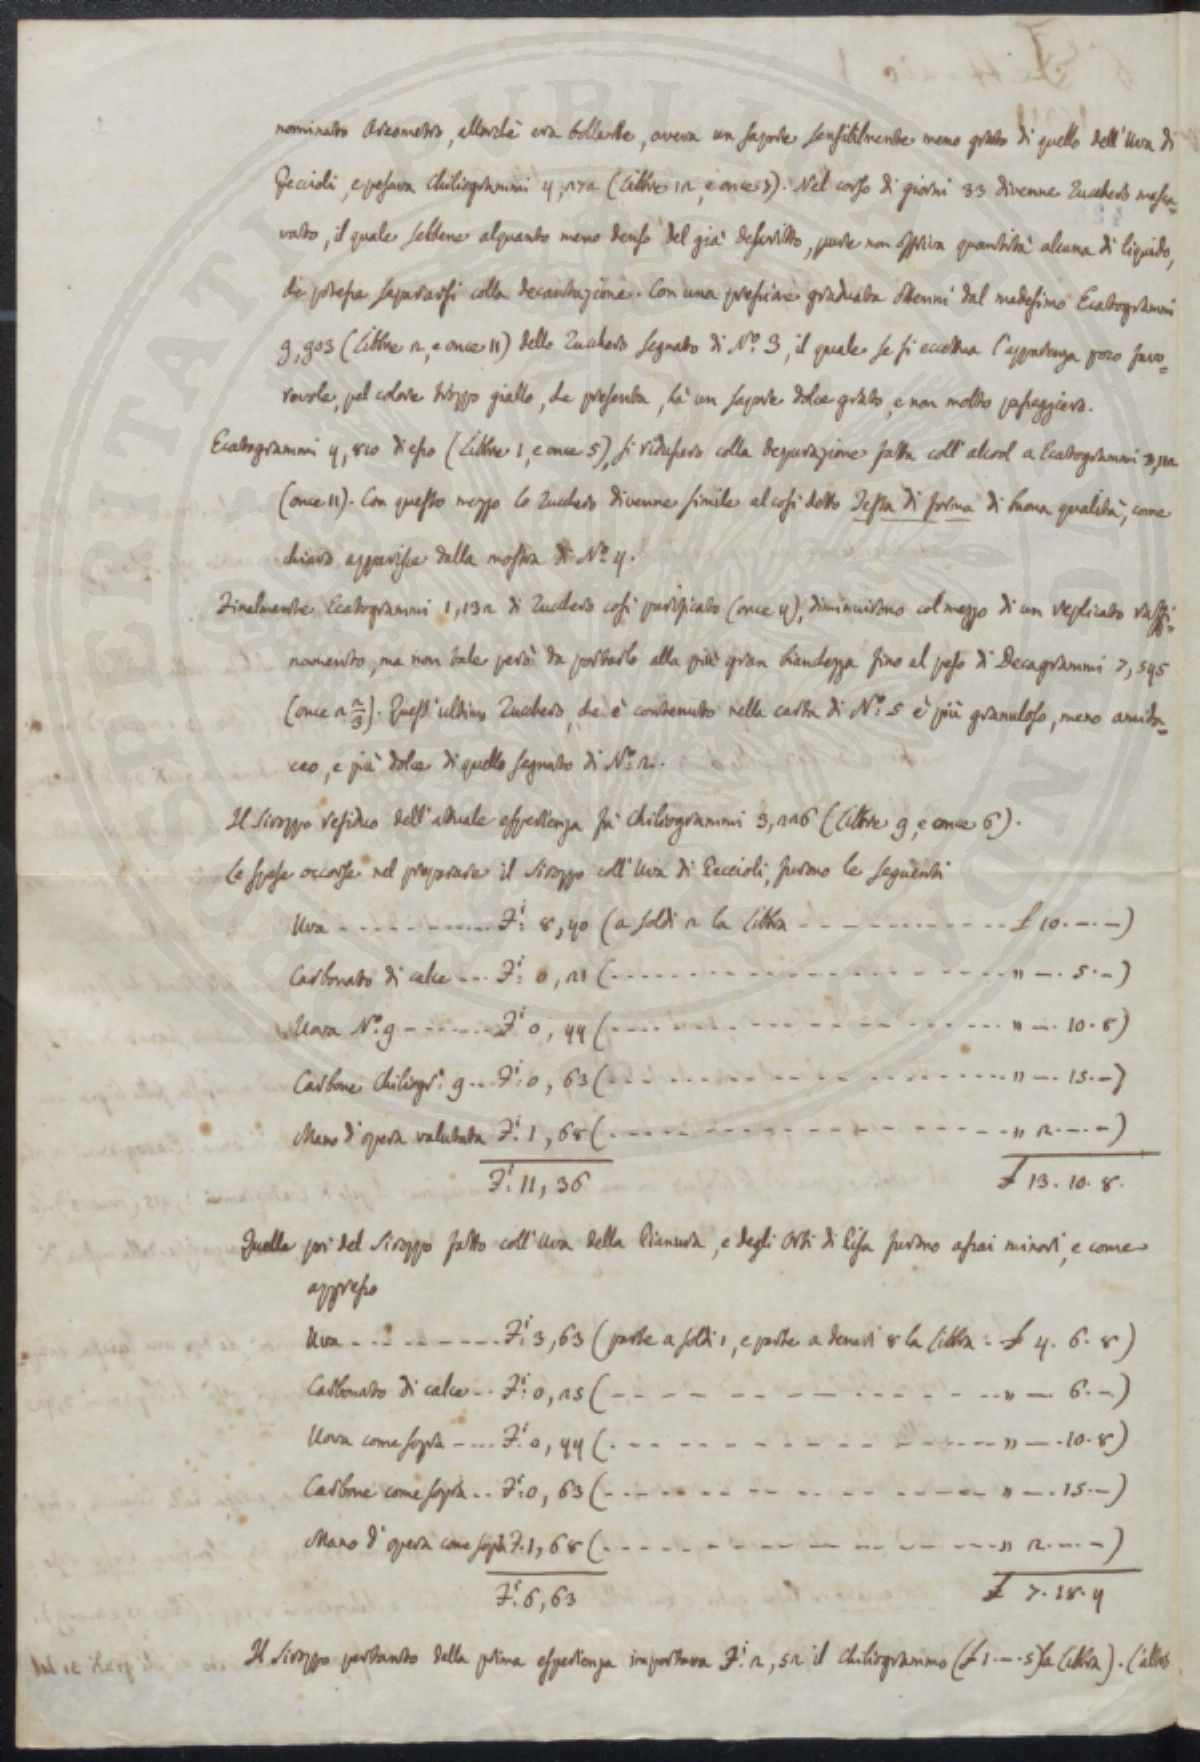 nominato Areometro, allorchè era bollente, aveva un sapore sensibilmente meno grato di quello dell'Uva di
Peccioli, e pesava Chiliogrammi 4,272 (Libbre 12, e once 7). Nel corso di giorni 33 divenne Zucchero mosca-
vato, il quale sebbene alquanto meno denso del già descritto, pure non offriva quantità alcuna di liquido,
che potesse separarsi colla decantazione. Con una pressione graduata ottenni dal medesimo Ecatogrammi
9,903 (Libbre 2, e once 11) dello Zucchero segnato di Nº. 3, il quale se si eccettua l'apparenza poco favo-
revole, pel colore troppo giallo, che presenta, hà un sapore dolce grato, e non molto passeggiero.
Ecatogrammi 4,810 di esso (Libbre 1, e once 5), si ridussero colla depurazione fatta coll'alcool a Ecatogrammi 3,112
(once 11). Con questo mezzo lo Zucchero divenne simile al così detto Testa di forma di buona qualità, come
chiaro apparisce dalla mostra di Nº. 4.
Finalmente Ecatogrammi 1,132 di Zucchero così purificato (once 4), diminuirono col mezzo di un replicato raffi-
namento, ma non tale però da portarlo alla più gran bianchezza fino al peso di Decagrammi 7,545
(once 2 2/3). Quest'ultimo Zucchero, che è contenuto nella carta di Nº. 5 è più granuloso, meno amila-
ceo, e più dolce di quello segnato di Nº. 2.
Il Siroppo residuo dell'attuale esperienza fù Chiliogrammi 3,226 (Libbre 9, e once 6).
Le spese occorse nel preparare il Siroppo coll'Uva di Peccioli, furono le seguenti
Uva - - - - - - - - F.i 8,40 (a soldi 2 la Libbra - - - - - - - - £ 10. - . -)
Carbonato di calce - - - F.i 0,21 (- - - - - - - - - - - - - - - - " - . 5. -)
Uova Nº. 9 - - - - - - F.i 0,44 (- - - - - - - - - - - - - - - - " - . 10. 8)
Carbone Chiliogr.i 9 - - F.i 0,63 (- - - - - - - - - - - - - - - - " - . 15. -)
Mano d'opera valutata F.i 1,68 (- - - - - - - - - - - - - - - - " 2. - . -)
F.i 11,36 £ 13. 10. 8.
Quelle poi del Siroppo fatto coll'Uva della Pianura, e degli Orti di Pisa furono assai minori, e come
appresso
Uva - - - - - - - - F.i 3,63 (parte a soldi 1, e parte a denari 8 la Libbra - £ 4. 6. 8)
Carbonato di calce - - F.i 0,25 (- - - - - - - - - - - - - - - - " - 6. -)
Uova come sopra - - - - F.i 0,44 (- - - - - - - - - - - - - - - - " - . 10. 8)
Carbone come sopra - - F.i 0,63 (- - - - - - - - - - - - - - - - " - . 15. -)
Mano d'opera come sopra F. 1,68 (- - - - - - - - - - - - - - - - " 2. - . -)
F.i 6,63 £ 7. 18. 4
Il Siroppo pertanto della prima esperienza importava F.i 2,52 il Chiliogrammo (£ 1. - . 5 la Libbra). L'altro